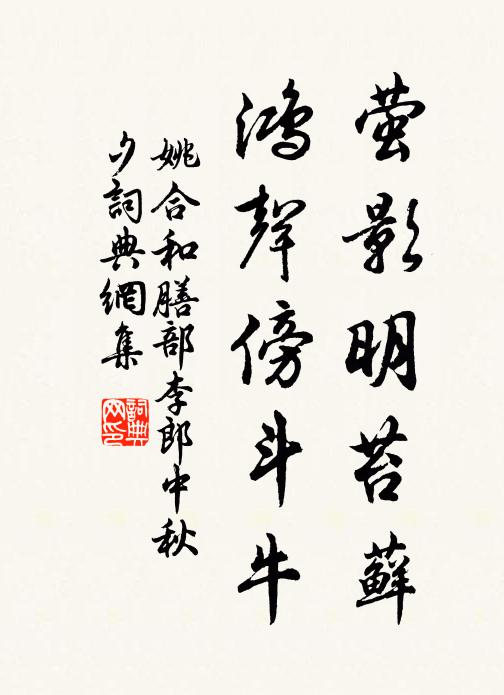 萤影明苔藓
鸿聲傍斗牛
姚合和膳部李郎中秋
夕詞典網集
詞典网印